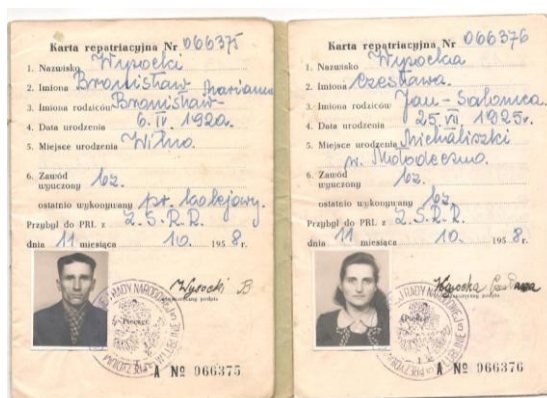 Karta repatriacyjna Nr 066375
1. Nazwisko Wysocki
2. Imiona Bronisław
3. Imiona rodziców Bronisław - Marianna
4. Data urodzenia 6. IV. 1920.
5. Miejsce urodzenia Wilno.
6. Zawód
wyuczony bz.
ostatnio wykonywany pr. kolejowy.
Przybył do PRL z Z.S.R.R.
dnia 11 miesiąca 10. 1958 r.
Wysocki B
podpis
A Nº 066375
Karta repatriacyjna Nr 066376
1. Nazwisko Wysocka
2. Imiona Czesława.
3. Imiona rodziców Jan - Salomea.
4. Data urodzenia 25. VII. 1925r.
5. Miejsce urodzenia Michaliszki
w. Mołodeczno.
6. Zawód
wyuczony bz.
ostatnio wykonywany bz
Przybył do PRL z Z.S.R.R.
dnia 11 miesiąca 10. 1958 r.
Wysocka Czesława
podpis
A Nº 066376